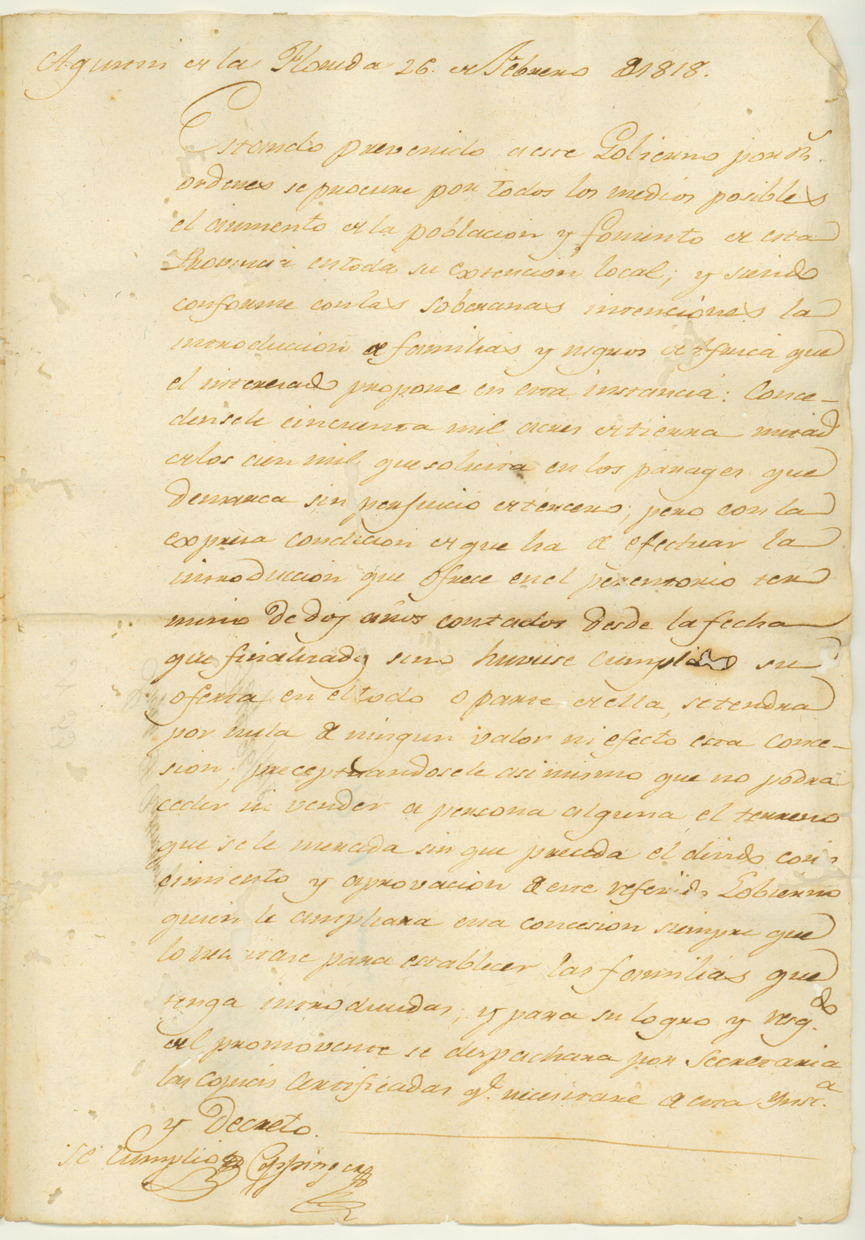 Agustin de la Florida 26. de Febrero de 1818.
Estando prevenido a este Gobierno por Rs.
ordenes se procure por todos los medios posibles
el aumento de la poblacion y fomento de esta
Provincia en toda su extencion local; y siendo
conforme con las soberanas intenciones la
introduccion de familias y negros de Africa que
el interesado propone en esta instancia: Conce-
densele cincuenta mil acres de tierra mitad
de los cien mil que solicita en los parages que
demarca sin perjuicio de tercero; pero con la
expresa condicion de que ha de efectuar la
introduccion que ofrece en el perentorio ter
mino de dos años contados desde la fecha
que finalizados sino huviese cumplido su
oferta en el todo o parte de ella, se tendra
por nula de ningun valor ni efecto esta conce-
sion, preceptuandosele asi mismo que no podra
ceder ni vender a persona alguna el terreno
que se le mercéda sin que preceda el devido con-
cimiento y aprovacion de este referido Gobierno
quien le ampliara esta concesion siempre que
lo necesitare para establecer las familias que
tenga introducidas; y para su logro y resg.do
del promovente se despachara por Secretaria
las copias certificadas q.e necesitare de esta Ynst.a
y Decreto.
se cumplio Coppinger